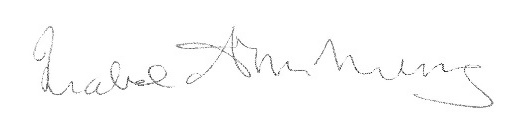 Isabel Armstrong